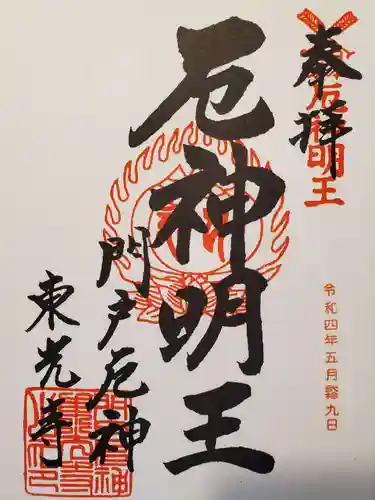 奉拝
厄神明王
令和四年五月
九日
厄神明王
門戸厄神
東光寺